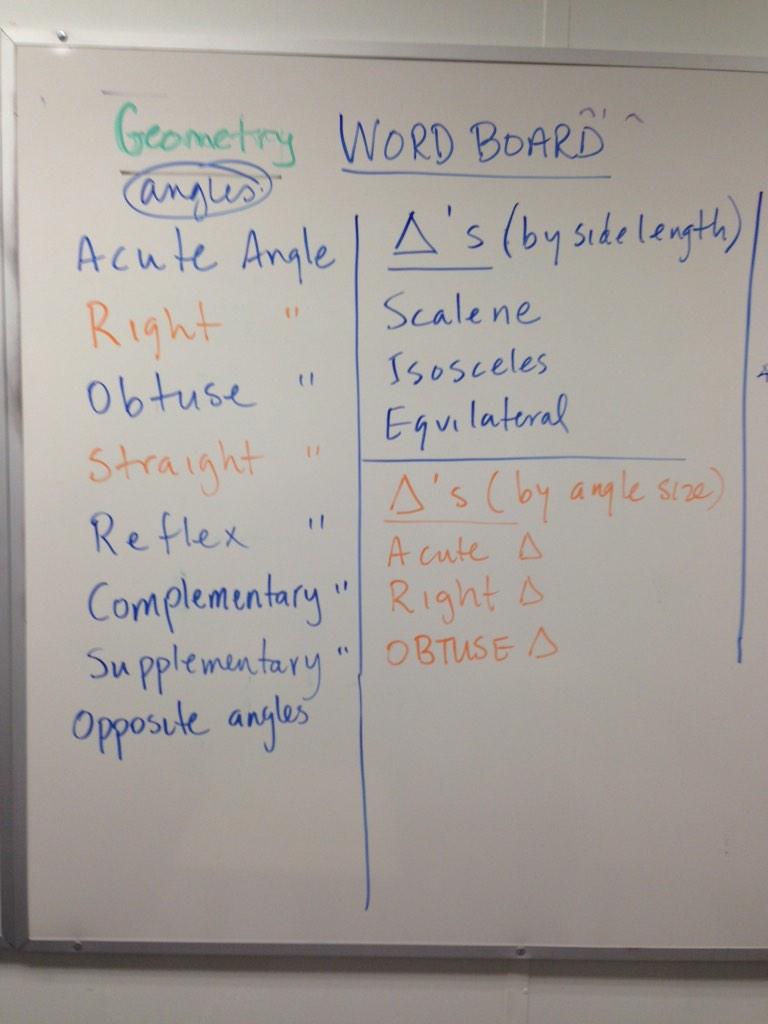 Geometry WORD BOARD
angles
Acute Angle
Right "
Obtuse "
Straight "
Reflex "
Complementary "
Supplementary "
Opposite angles
Δ's (by side length)
Scalene
Isosceles
Equilateral
Δ's (by angle size)
Acute Δ
Right Δ
OBTUSE Δ